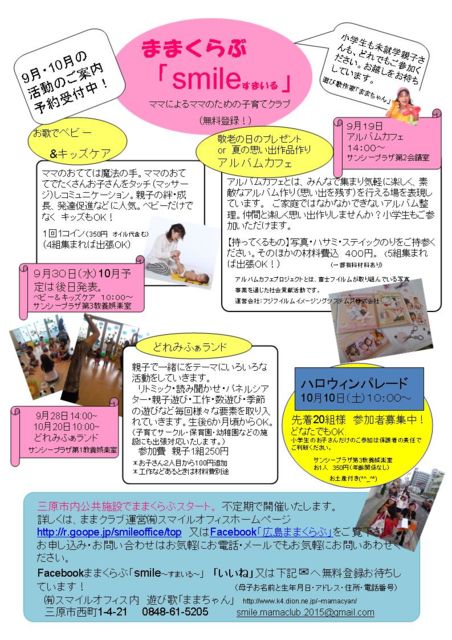 9月・10月の
活動のご案内
予約受付中！
ままくらぶ
「smileすまいる」
ママによるママのための子育てクラブ
（無料登録！）
小学生も未就学親子さ
んも、どれでもご参加く
ださい。お越しをお待ち
しています。
遊び歌作家「ままちゃん」
お歌でベビー
&キッズケア
ママのおてては魔法の手。ママのおて
ててたくさんお子さんをタッチ（マッサー
ジ）レコミュニケーション。親子の絆・成
長、発達促進などに人気。ベビーだけで
なく　キッズもOK！
1回1コイン（350円　オイル代含む）
（4組集まれば出張OK）
9月30日（水）10月予
定は後日発表。
ベビー＆キッズケア　10：00～
サンシープラザ第3教養娯楽室
敬老の日のプレゼント
or　夏の思い出作品作り
アルバムカフェ
9月19日
アルバムカフェ
14：00～
サンシープラザ第2会議室
アルバムカフェとは、みんなで集まり気軽に楽しく、素
敵なアルバム作り（思い出を残す）を行える場を表現し
ています。ご家庭ではなかなかできないアルバム整
理。仲間と楽しく思い出作りしませんか？小学生もご参
加いただけます。
【持ってくるもの】写真・ハサミ・スティックのりをご持参く
ださい。そのほかの材料費込　400円。（5組集まれ
ば出張OK！）　（一部有料材料あり）
アルバムカフェプロジェクトとは、富士フイルムが取り組んでいる写真
事業を通じた社会貢献活動です。
運営会社：フジフイルム・イメージングシステムズ株式会社
どれみふぁランド
親子で一緒にをテーマにいろいろな
活動をしていきます。
リトミック・読み聞かせ・パネルシア
ター・親子遊び・工作・数遊び・季節
の遊びなど毎回様々な要素を取り入
れていきます。生後6か月頃からOK。
（子育てサークル・保育園・幼稚園などの施
設にも出張対応いたします。）
参加費　親子1組250円
＊お子さん2人目から100円追加
＊工作などあるときは材料費別途
9月28日 14：00～
10月20日 10：00～
どれみふぁランド
サンシープラザ第1教養娯楽室
ハロウィンパレード
10月10日（土）10：00～
先着20組様　参加者募集中！
どなたでもOK
小学生のお子さんだけのご参加は保護者の責任で
ご判断ください。
サンシープラザ第3教養娯楽室
お1人　350円（年齢関係なし）
お土産付き(^_^)
三原市内公共施設でままくらぶスタート。不定期で開催いたします。
詳しくは、ままクラブ運営㈲スマイルオフィスホームページ
http://r.goope.jp/smileoffice/top　又はFacebook「広島ままくらぶ」をご覧下さい。
お申し込み・お問い合わせはお気軽にお電話・メールでもお気軽にお問いあわせく
ださい。
Facebookままくらぶ「smile～すまいる～」　「いいね」又は下記✉へ無料登録お待ちし
ています！　（母子お名前と生年月日・アドレス・住所・電話番号）
㈲スマイルオフィス内　遊び歌「ままちゃん」　http://www.k4.dion.ne.jp/~mamacyan/
三原市西町1-4-21　0848-61-5205　smile.mamaclub.2015@gmail.com